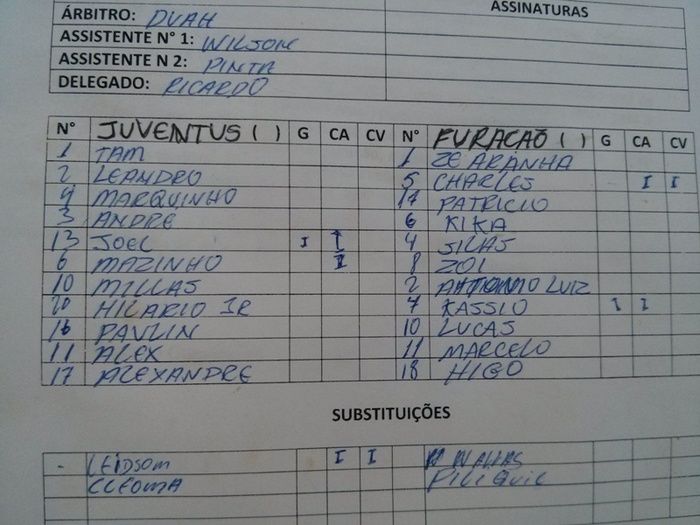 ÁRBITRO: DVAH ASSINATURAS
ASSISTENTE N° 1: WILSON
ASSISTENTE N 2: PINTA
DELEGADO: RICARDO
N° JUVENTUS ( ) G CA CV N° FURACAO ( ) G CA CV
1 TAM 1 ZE ARANHA
2 LEANDRO 5 CHARLES I I
4 MARQUINHO 17 PATRICIO
3 ANDRE 6 KIKA
13 JOEL I I 4 SILAS
6 MAZINHO I 8 ZOI
10 MILLAS 2 ANTONIO LUIZ
20 HILARIO JR 7 KASSIO I I
16 PAVLIN 10 LUCAS
11 ALEX 11 MARCELO
17 ALEXANDRE 18 HIGO
SUBSTITUIÇÕES
- LEIDSOM I I
CLEOMA